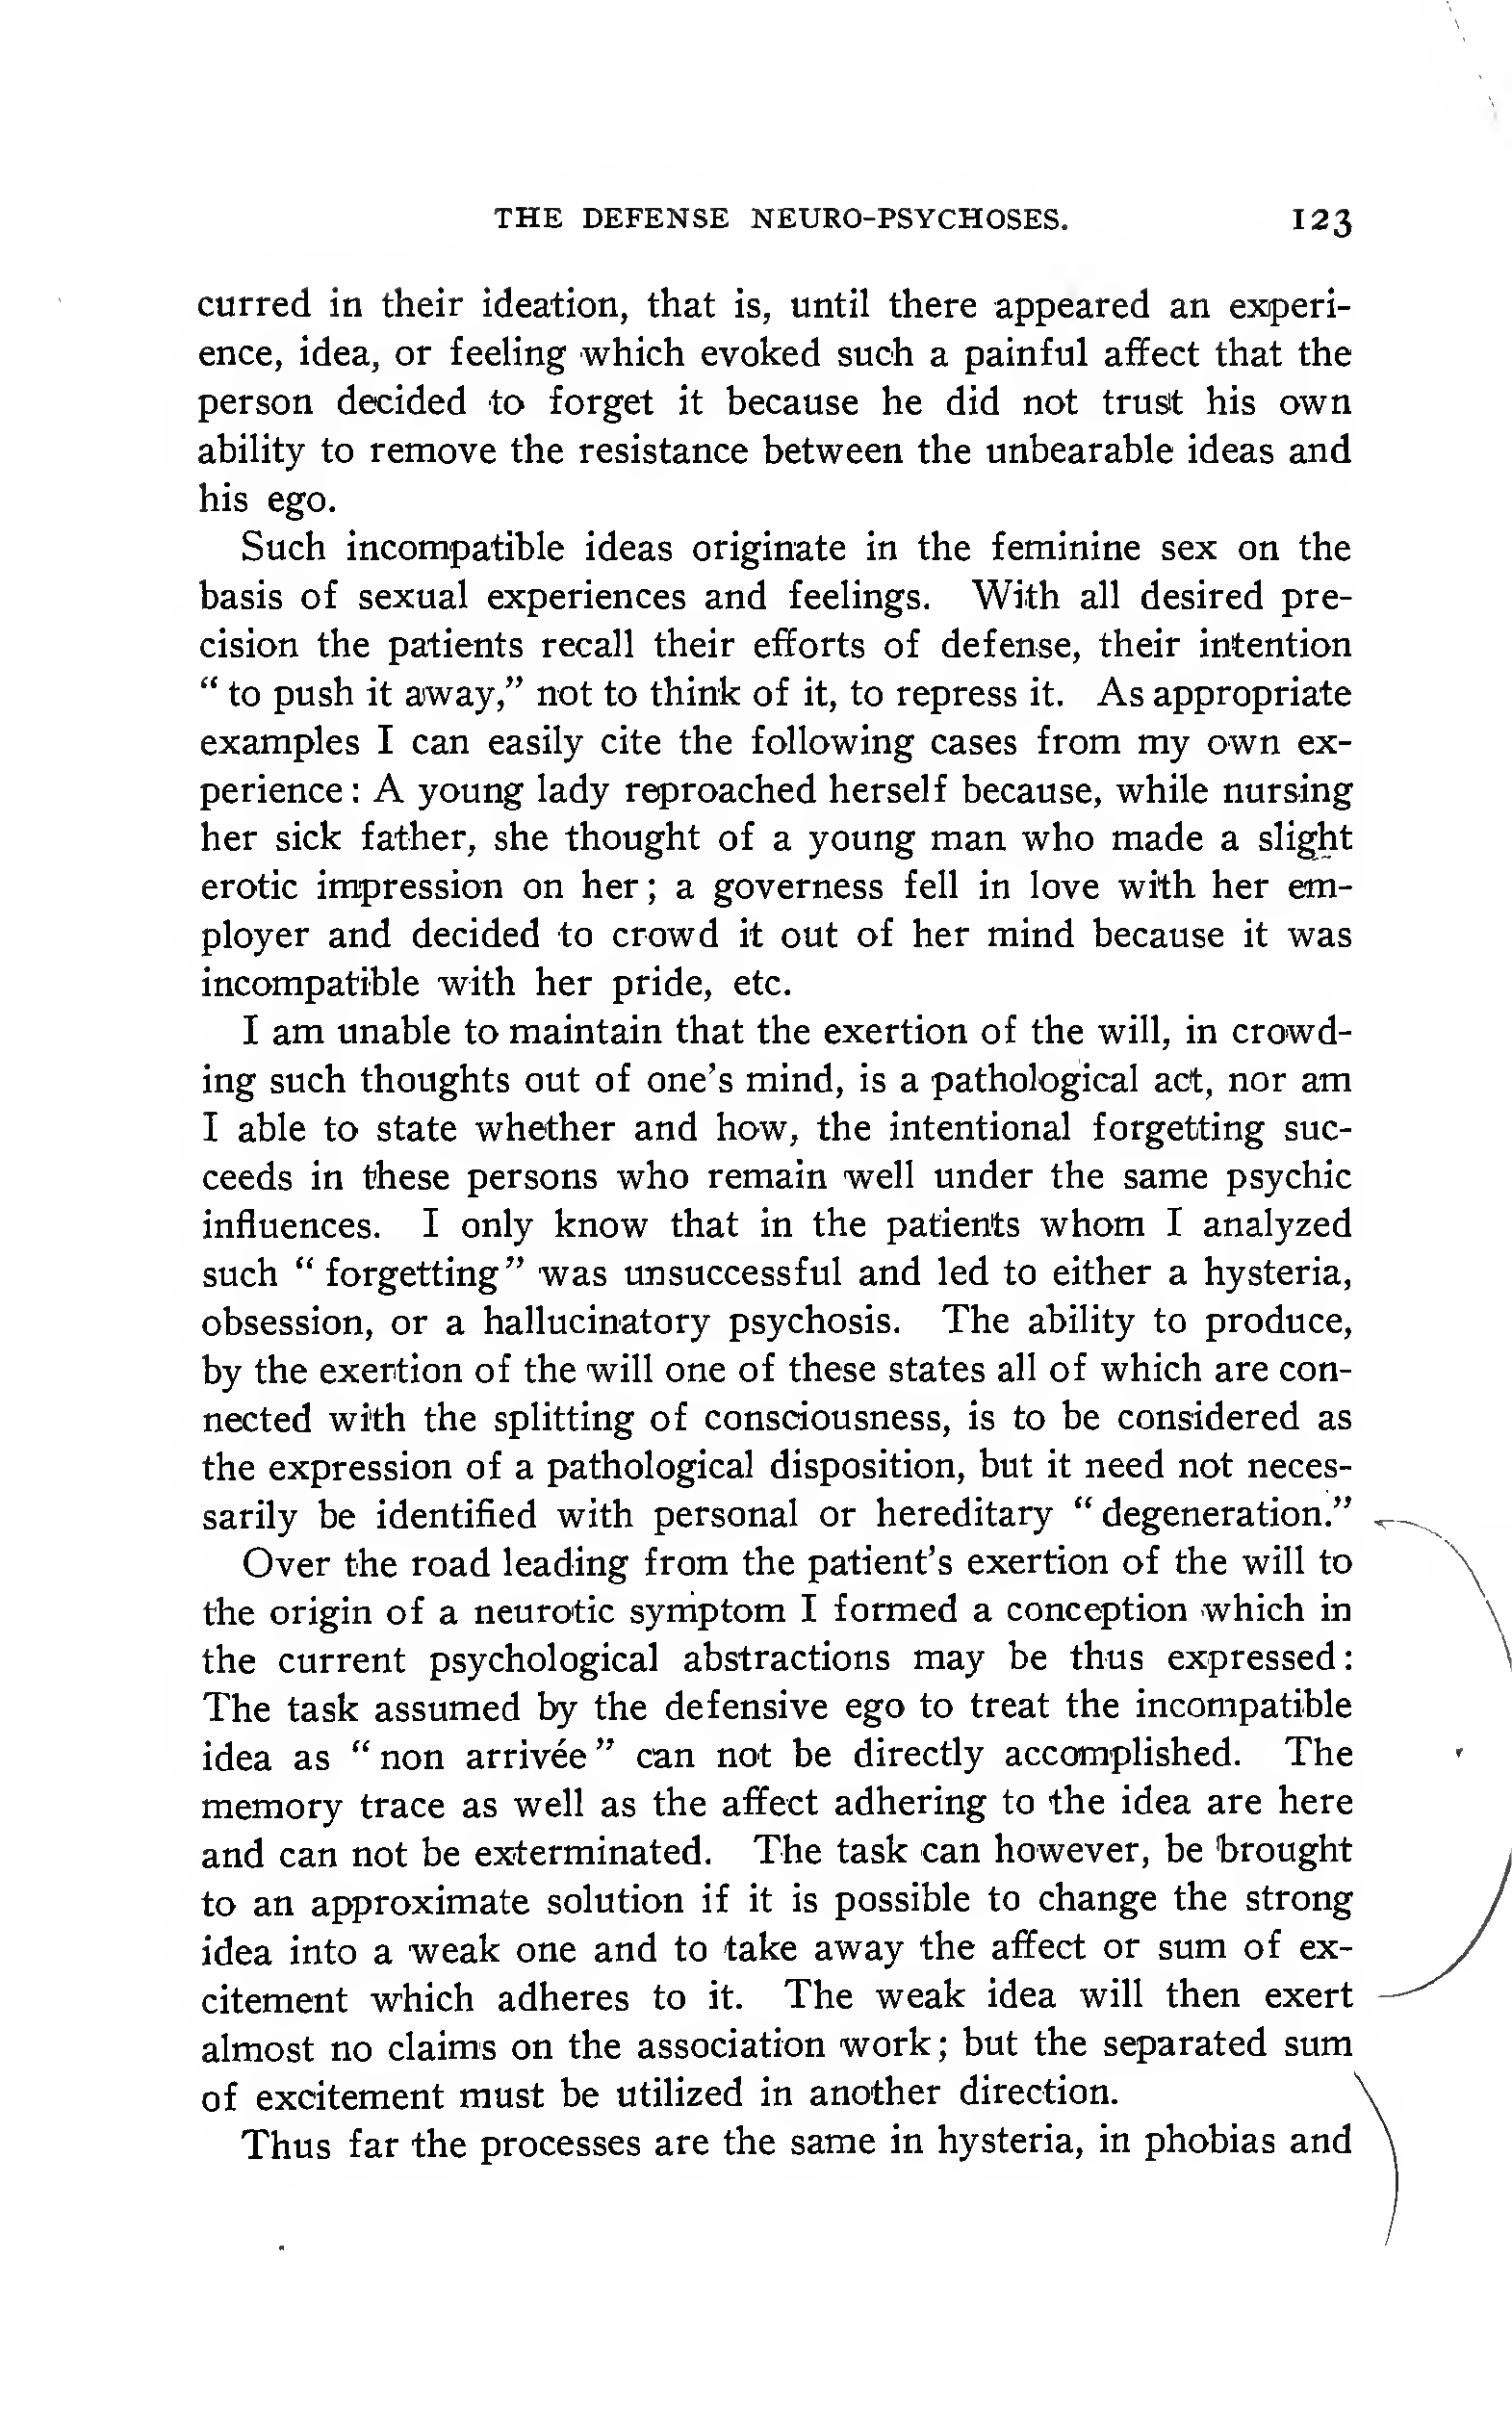 THE DEFENSE NEURO-PSYCHOSES. 123
curred in their ideation, that is, until there appeared an experi-
ence, idea, or feeling which evoked such a painful affect that the
person decided to forget it because he did not trust his own
ability to remove the resistance between the unbearable ideas and
his ego.
Such incompatible ideas originate in the feminine sex on the
basis of sexual experiences and feelings. With all desired pre-
cision the patients recall their efforts of defense, their intention
“ to push it away,” not to think of it, to repress it. As appropriate
examples I can easily cite the following cases from my own ex-
perience: A young lady reproached herself because, while nursing
her sick father, she thought of a young man who made a slight
erotic impression on her; a governess fell in love with her em-
ployer and decided to crowd it out of her mind because it was
incompatible with her pride, etc.
I am unable to maintain that the exertion of the will, in crowd-
ing such thoughts out of one’s mind, is a pathological act, nor am
I able to state whether and how, the intentional forgetting suc-
ceeds in these persons who remain well under the same psychic
influences. I only know that in the patients whom I analyzed
such “ forgetting” was unsuccessful and led to either a hysteria,
obsession, or a hallucinatory psychosis. The ability to produce,
by the exertion of the will one of these states all of which are con-
nected with the splitting of consciousness, is to be considered as
the expression of a pathological disposition, but it need not neces-
sarily be identified with personal or hereditary “ degeneration.”
Over the road leading from the patient’s exertion of the will to
the origin of a neurotic symptom I formed a conception which in
the current psychological abstractions may be thus expressed:
The task assumed by the defensive ego to treat the incompatible
idea as “ non arrivée ” can not be directly accomplished. The
memory trace as well as the affect adhering to the idea are here
and can not be exterminated. The task can however, be brought
to an approximate solution if it is possible to change the strong
idea into a weak one and to take away the affect or sum of ex-
citement which adheres to it. The weak idea will then exert
almost no claims on the association work; but the separated sum
of excitement must be utilized in another direction.
Thus far the processes are the same in hysteria, in phobias and